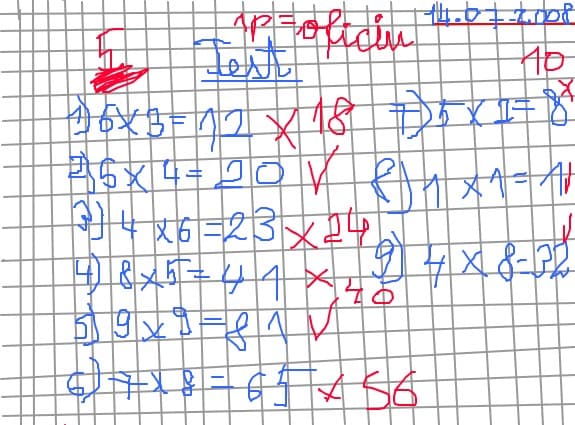 1p=oficiu 14.0+-2.008
5 Test
10
1) 6x3=12 x 18
2) 5x4=20 √
3) 4x6=23 x 24
4) 8x5=41 x 40
5) 9x9=81 √
6) 7x8=65 x 56
7) 5x2=8 x
8) 1x1=1 √
9) 4x8=32 √